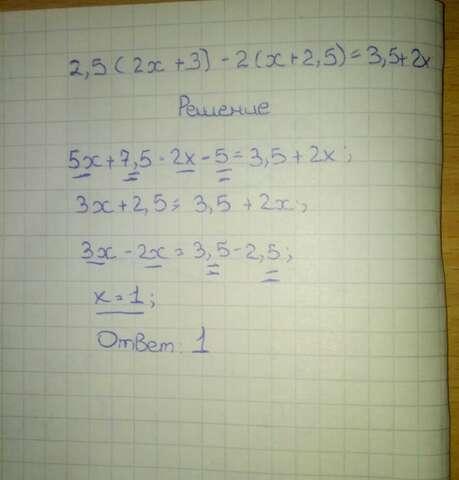 2,5(2x+3)-2(x+2,5)=3,5+2x
Решение
5x+7,5-2x-5=3,5+2x;
3x+2,5=3,5+2x;
3x-2x=3,5-2,5;
x=1;
Ответ: 1